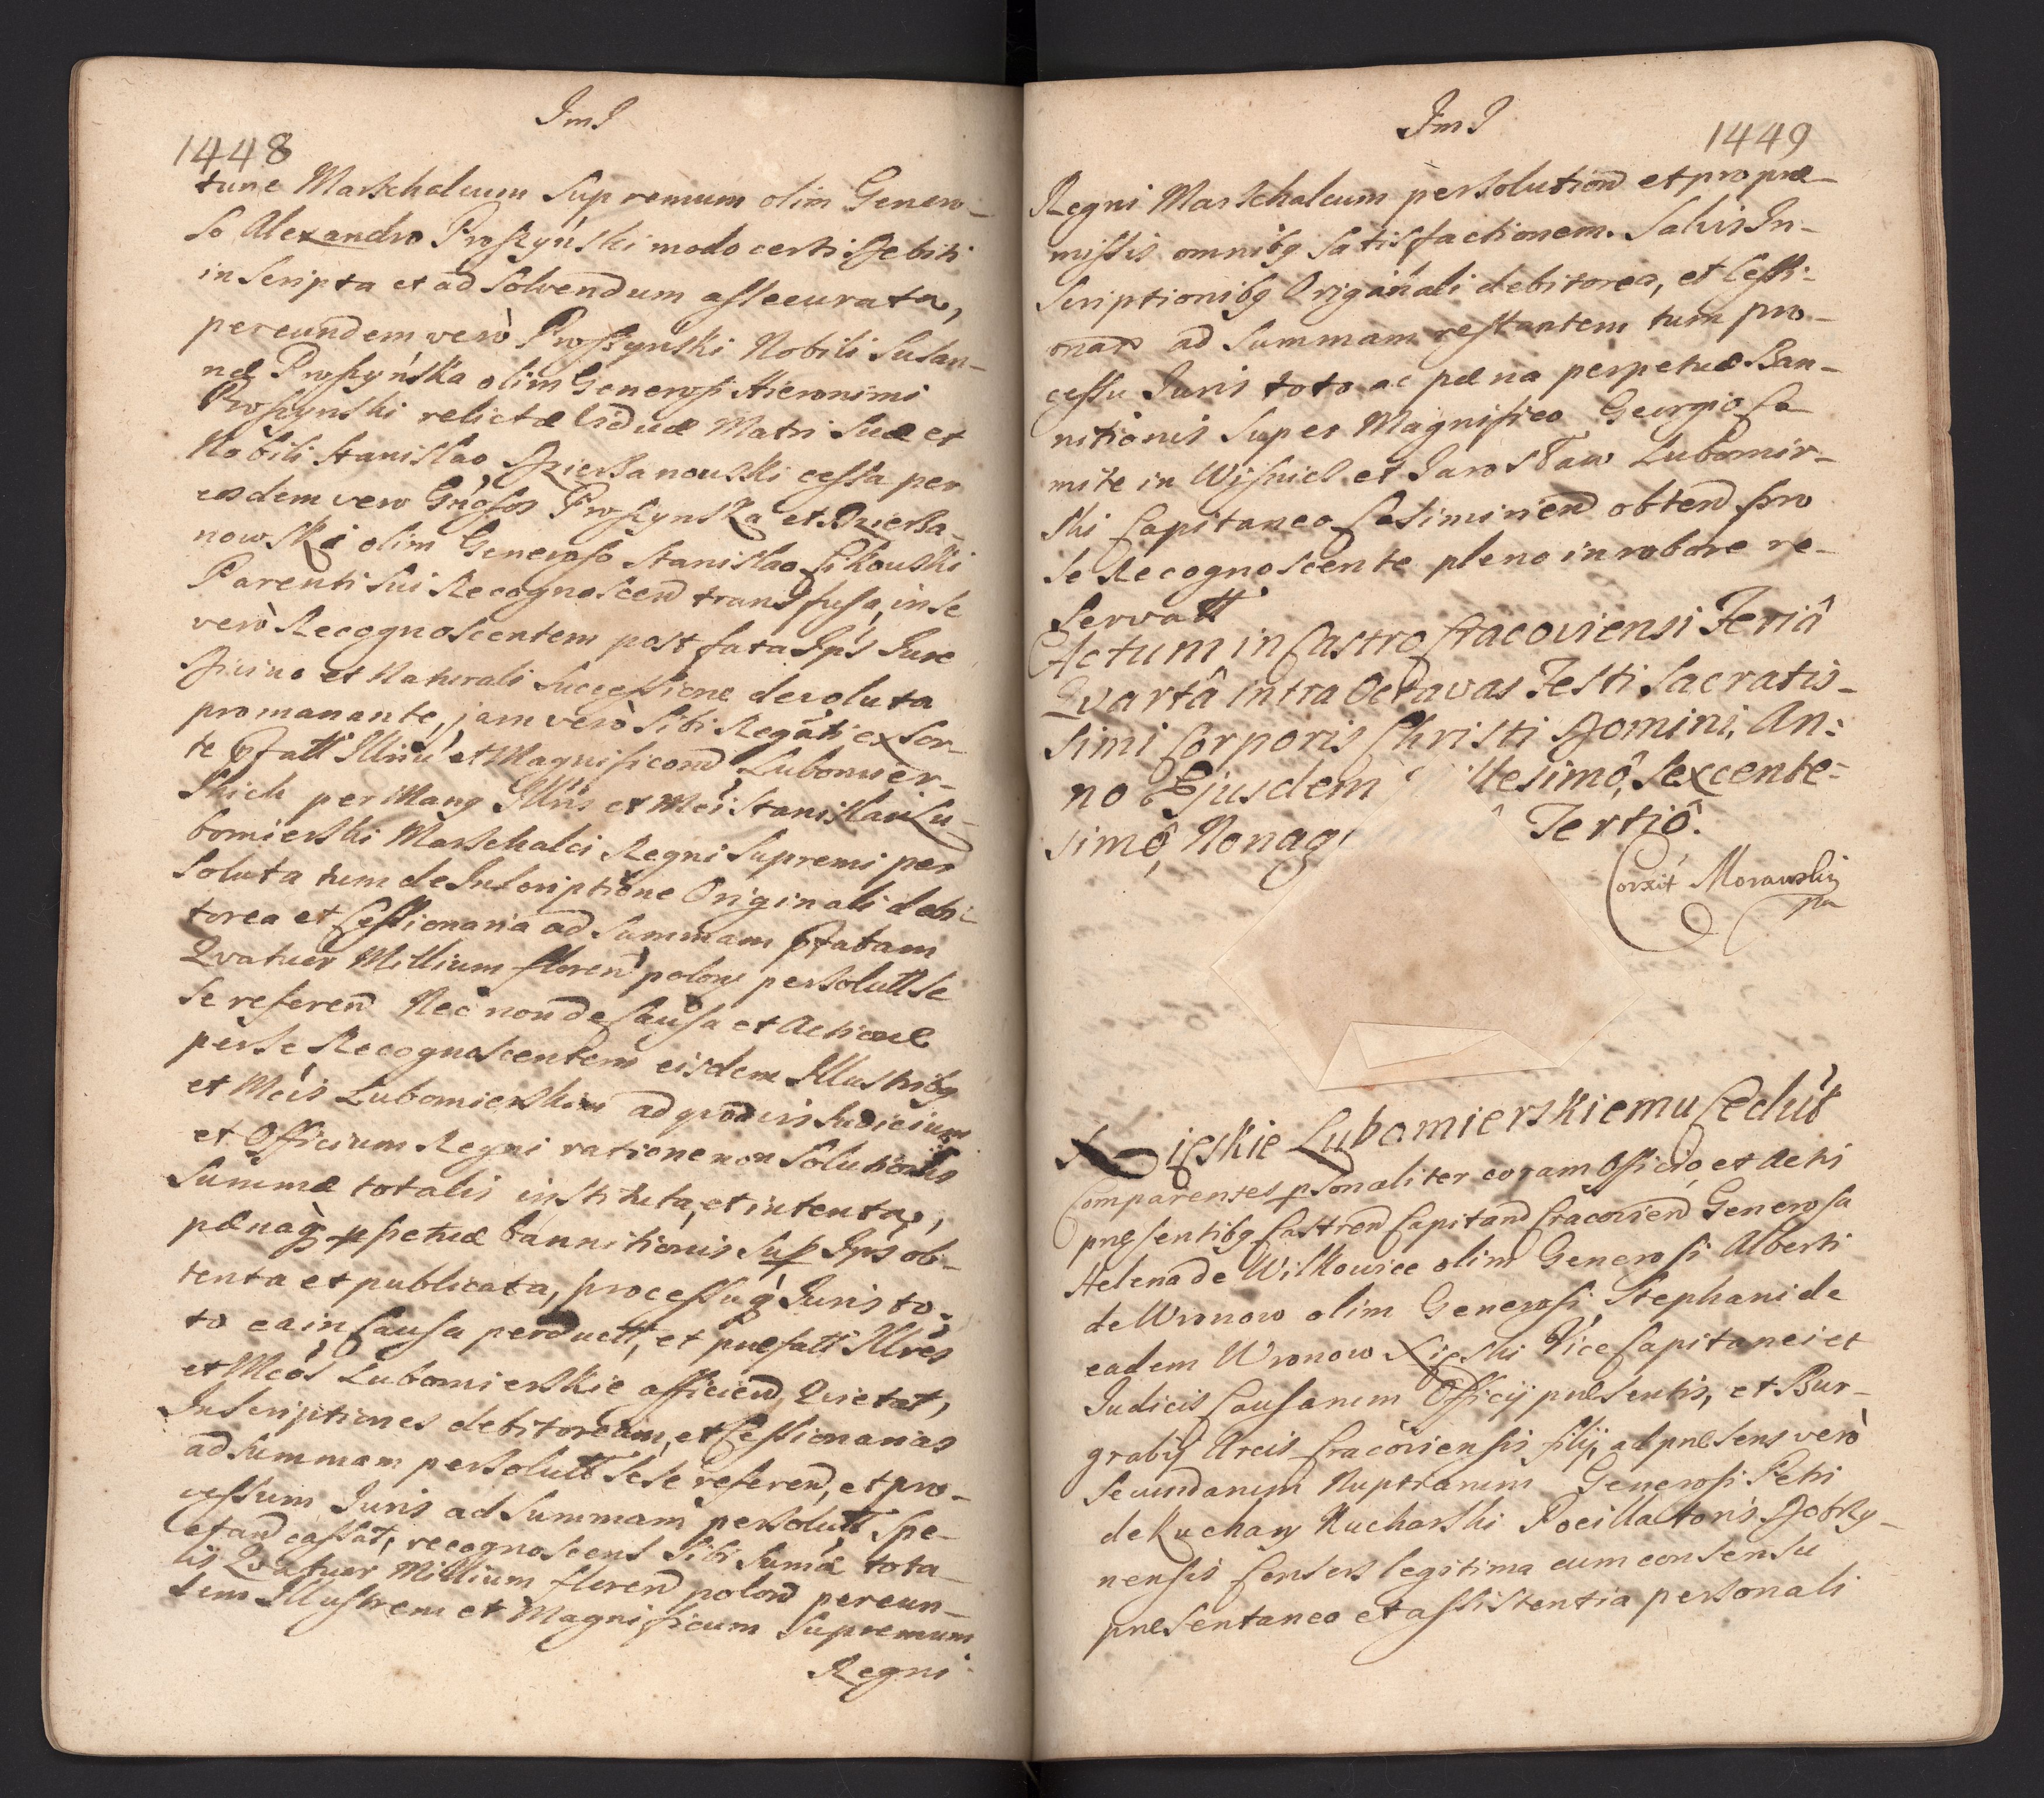 JmJ
1448
tunc Marschalcum Supremum olim Genero-
so Alexandro Proszyński modo certi Debiti
inscripta et ad solvendum assecurata,
per eundem verò Proszynski Nobili Susan-
næ Proszyńska olim Generosi Hieronimi
Proszynski relictæ Viduæ Matri Suæ et
Nobili Stanislao Dzierzanouski cessa per
eosdem vero Gñosos Proszynska et Dzierza-
nowski olim Generoso Stanislao Cikouski
Parenti sui Recognoscen transfusa, in se
verò Recognoscentem post fata Ipś Jure
Divino et Naturali Successione devoluta
promanante, jam verò Sibi Regn̄ti ex sor-
te pfatt Illriū et Magnificorū Lubomier-
skich per Mang Illris et Mci Stanislai Lu-
bomierski Marschalci Regni Supremi per
soluta tum de Inscriptione Originali debi-
torea et Cessionaria ad Summam pfatam
Qvatuor Millium floren polon persolutt se
se referen Nec non de Causa et Actione
per se Recognoscentem eisdem Illustribg
et Mcis Lubomierskim ad qvodvis Judicium
et Officium Regni ratione non Solutionis
Summæ totalis instituta, et intenta,
pænaq ppetuæ bannitionis sup Ips ob-
tenta et publicata, processuq Juris to-
to ea in Causa perducti, et præfatt Illres
et Mcos Lubomierskie afficien, Qvietat,
Inscriptiones debitoream, et Cessionarias
ad summam persolutt sese referen, et pro-
cessum Juris ad Summam persolutt Spe-
ctan cassat, recognoscens sibi Sumæ tota-
lis Qvatuor Millium floren polon per eun-
dem Illustrem et Magnificum Supremum
Regni
JmJ
1449
Regni Marschalcum persolution et pro præ-
missis omnibg satisfactionem. Salvis In-
scriptionibg Originali debitorea, et Cessi-
onar ad Summam restantem tum pro-
cessu Juris toto ac pæna perpetuæ Ban-
nitionis super Magnifico Georgio Co-
mite in Wisnicz et Jarosław Lubomir-
ski Capitaneo Casimirien obten pro
se Recognoscente pleno in robore re-
servatt
Actum in Castro Cracoviensi Feriâ
Qvartâ intra Octavas Festi Sacratis-
simi Corporis Christi Domini, An:
no Ejusdem llesimô, Sexcente-
simô, Nonag Tertiô.
Corxit Morawski
pa
Xięskie Lubomierskiemu Cedut
Comparentes psonaliter coram Officio, et Actis
præsentibg Castren Capitan Cracovien Generosa
Helena de Wilkowice olim Generosi Alberti
de Wronow olim Generosi Stephani de
eadem Wronow Xięski Vice Capitanei et
Judicis Causarum Officij præsentis, et Bur-
grabij Arcis Cracoviensis filij, ad præsens verò
secundarum Nuptiarum Generosi Petri
de Kuchary Kucharski Pocillatoris Dobrzy-
nensis Consors legitima cum consensu
præsentaneo et assistentia personali